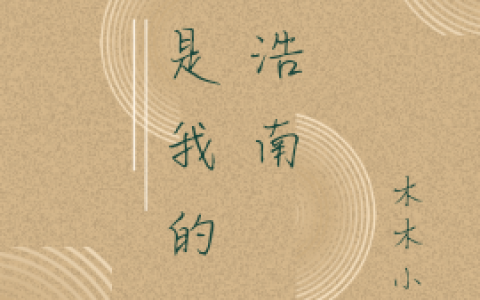 木木小
浩南
是我的